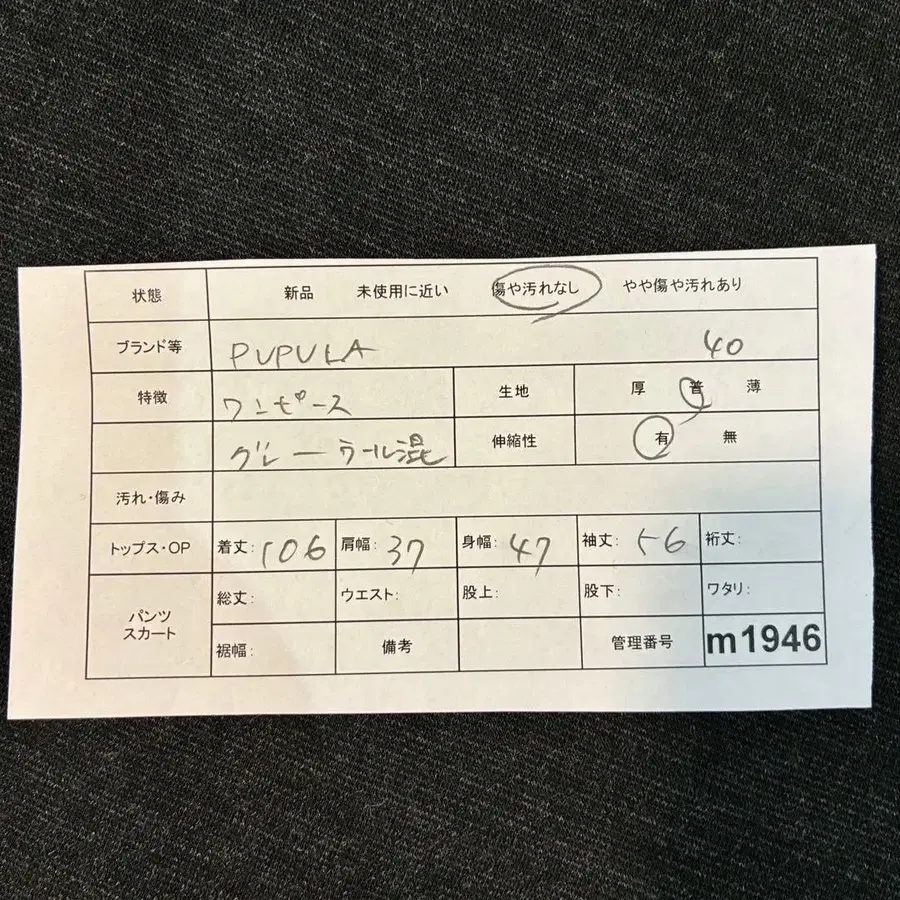 状態 新品 未使用に近い 傷や汚れなし やや傷や汚れあり
ブランド等 PUPULA 40
特徴 ワンピース 生地 厚 普 薄
グレー ウール混 伸縮性 有 無
汚れ・傷み
トップス・OP 着丈: 106 肩幅: 37 身幅: 47 袖丈: 56 裄丈:
パンツ スカート 総丈: ウエスト: 股上: 股下: ワタリ:
裾幅: 備考 管理番号 m1946